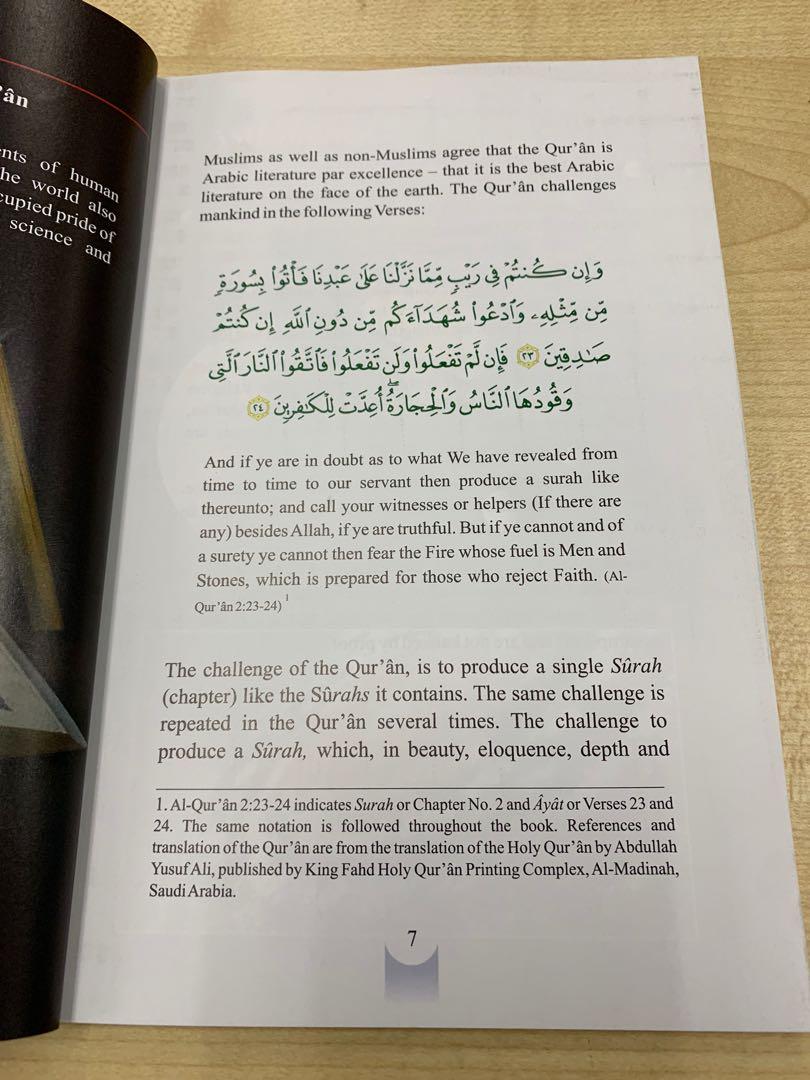 'ân
nts of human
he world also
cupied pride of
science and
Muslims as well as non-Muslims agree that the Qur'ân is
Arabic literature par excellence – that it is the best Arabic
literature on the face of the earth. The Qur'ân challenges
mankind in the following Verses:
وَإِن كُنتُمْ فِي رَيْبٍ مِّمَّا نَزَّلْنَا عَلَىٰ عَبْدِنَا فَأْتُوا۟ بِسُورَةٍ
مِّن مِّثْلِهِۦ وَٱدْعُوا۟ شُهَدَآءَكُم مِّن دُونِ ٱللَّهِ إِن كُنتُمْ
صَٰدِقِينَ ٢٣ فَإِن لَّمْ تَفْعَلُوا۟ وَلَن تَفْعَلُوا۟ فَٱتَّقُوا۟ ٱلنَّارَ ٱلَّتِي
وَقُودُهَا ٱلنَّاسُ وَٱلْحِجَارَةُ ۖ أُعِدَّتْ لِلْكَٰفِرِينَ ٢٤
And if ye are in doubt as to what We have revealed from
time to time to our servant then produce a surah like
thereunto; and call your witnesses or helpers (If there are
any) besides Allah, if ye are truthful. But if ye cannot and of
a surety ye cannot then fear the Fire whose fuel is Men and
Stones, which is prepared for those who reject Faith. (Al-
Qur'ân 2:23-24) 1
The challenge of the Qur'ân, is to produce a single Sûrah
(chapter) like the Sûrahs it contains. The same challenge is
repeated in the Qur'ân several times. The challenge to
produce a Sûrah, which, in beauty, eloquence, depth and
1. Al-Qur'ân 2:23-24 indicates Surah or Chapter No. 2 and Âyât or Verses 23 and
24. The same notation is followed throughout the book. References and
translation of the Qur'ân are from the translation of the Holy Qur'ân by Abdullah
Yusuf Ali, published by King Fahd Holy Qur'ân Printing Complex, Al-Madinah,
Saudi Arabia.
7